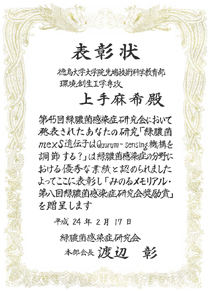 表彰状
徳島大学大学院先端技術科学教育部
環境創生工学専攻
上手麻希殿
第45回緑膿菌感染症研究会において
発表されたあなたの研究「緑膿菌
mexS遺伝子はQuorum-sensing機構を
調節する?」は緑膿菌感染症の分野に
おける優秀な業績と認められました
よってここに表彰し「みのるメモリアル・
第八回緑膿菌感染症研究会奨励賞」
を贈呈します
平成24年2月17日
緑膿菌感染症研究会
本部会長 渡辺 彰